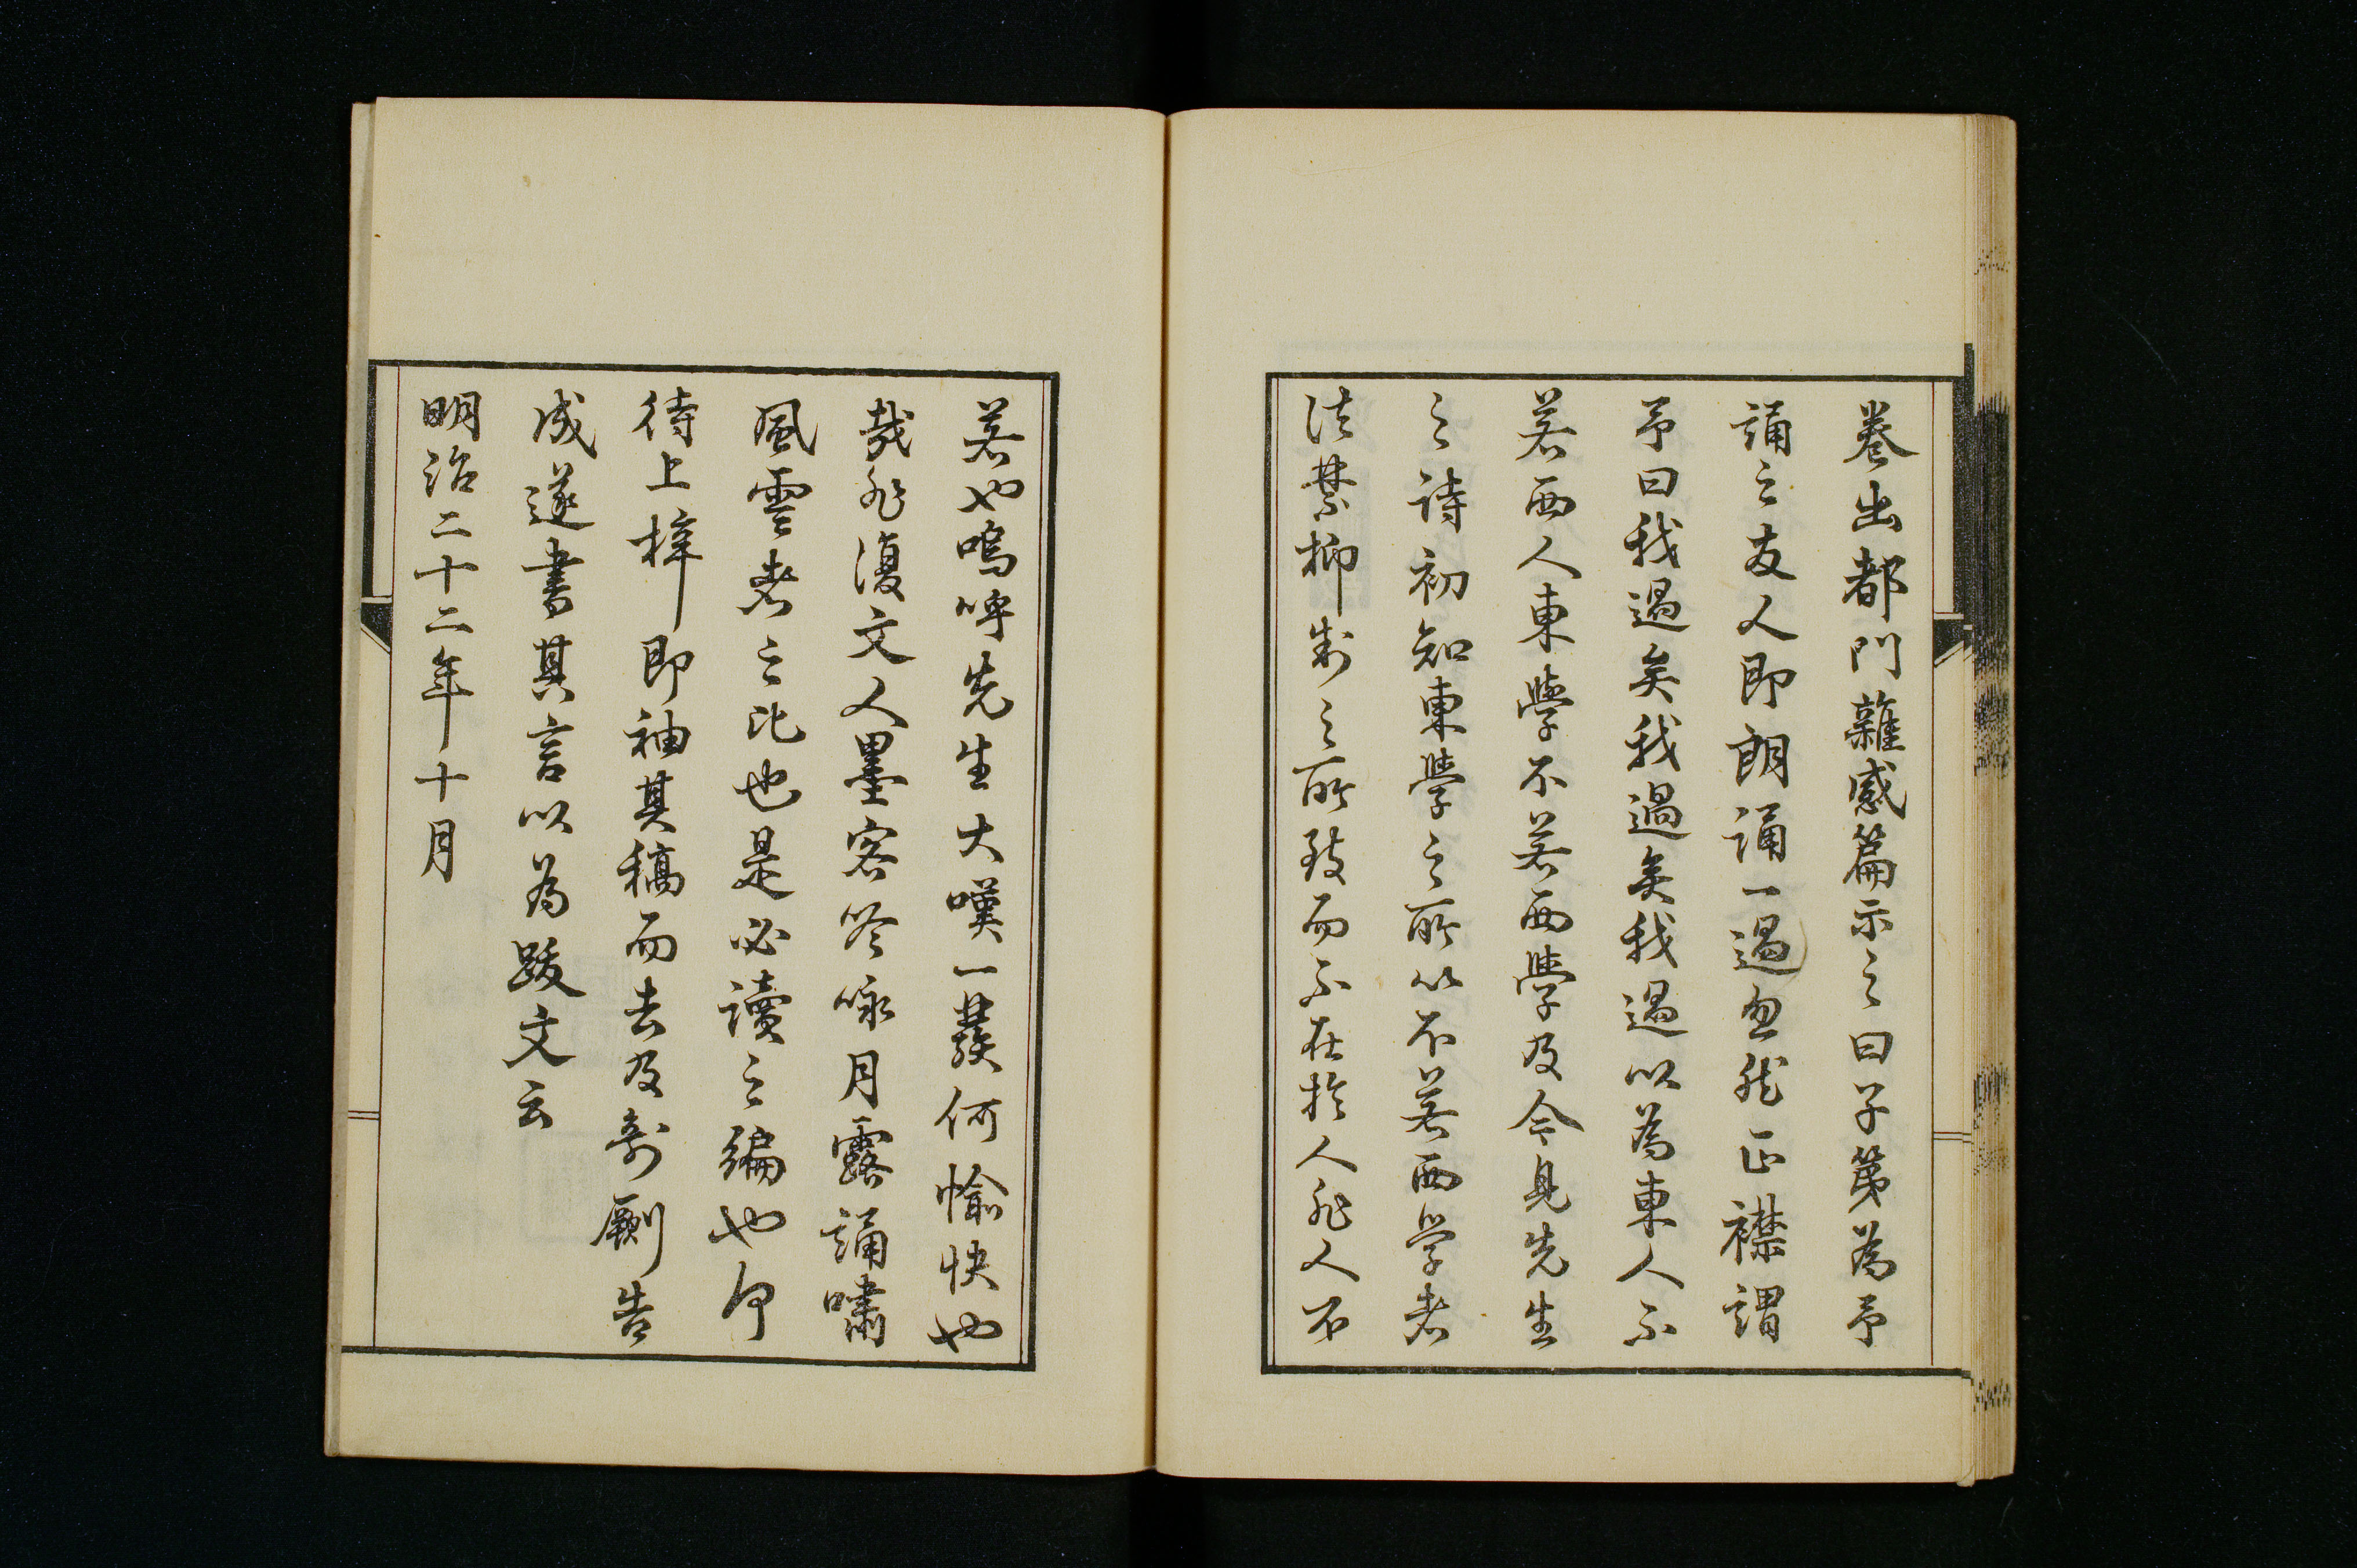 卷出都門雜感篇示之曰子第為予
誦之友人即朗誦一過忽然正襟謂
予曰我過矣我過矣我過以為東人不
若西人東學不若西學及今見先生
之詩初知東學之所以不若西學者
法禁抑制之所致而不在於人非人不
若也嗚呼先生大嘆一發何愉快也
哉非復文人墨客吟咏月露誦嘯
風雲者之比也是必讀之編也何
待上梓即袖其稿而去及剞劂告
成遂書其言以為跋文云
明治二十二年十月